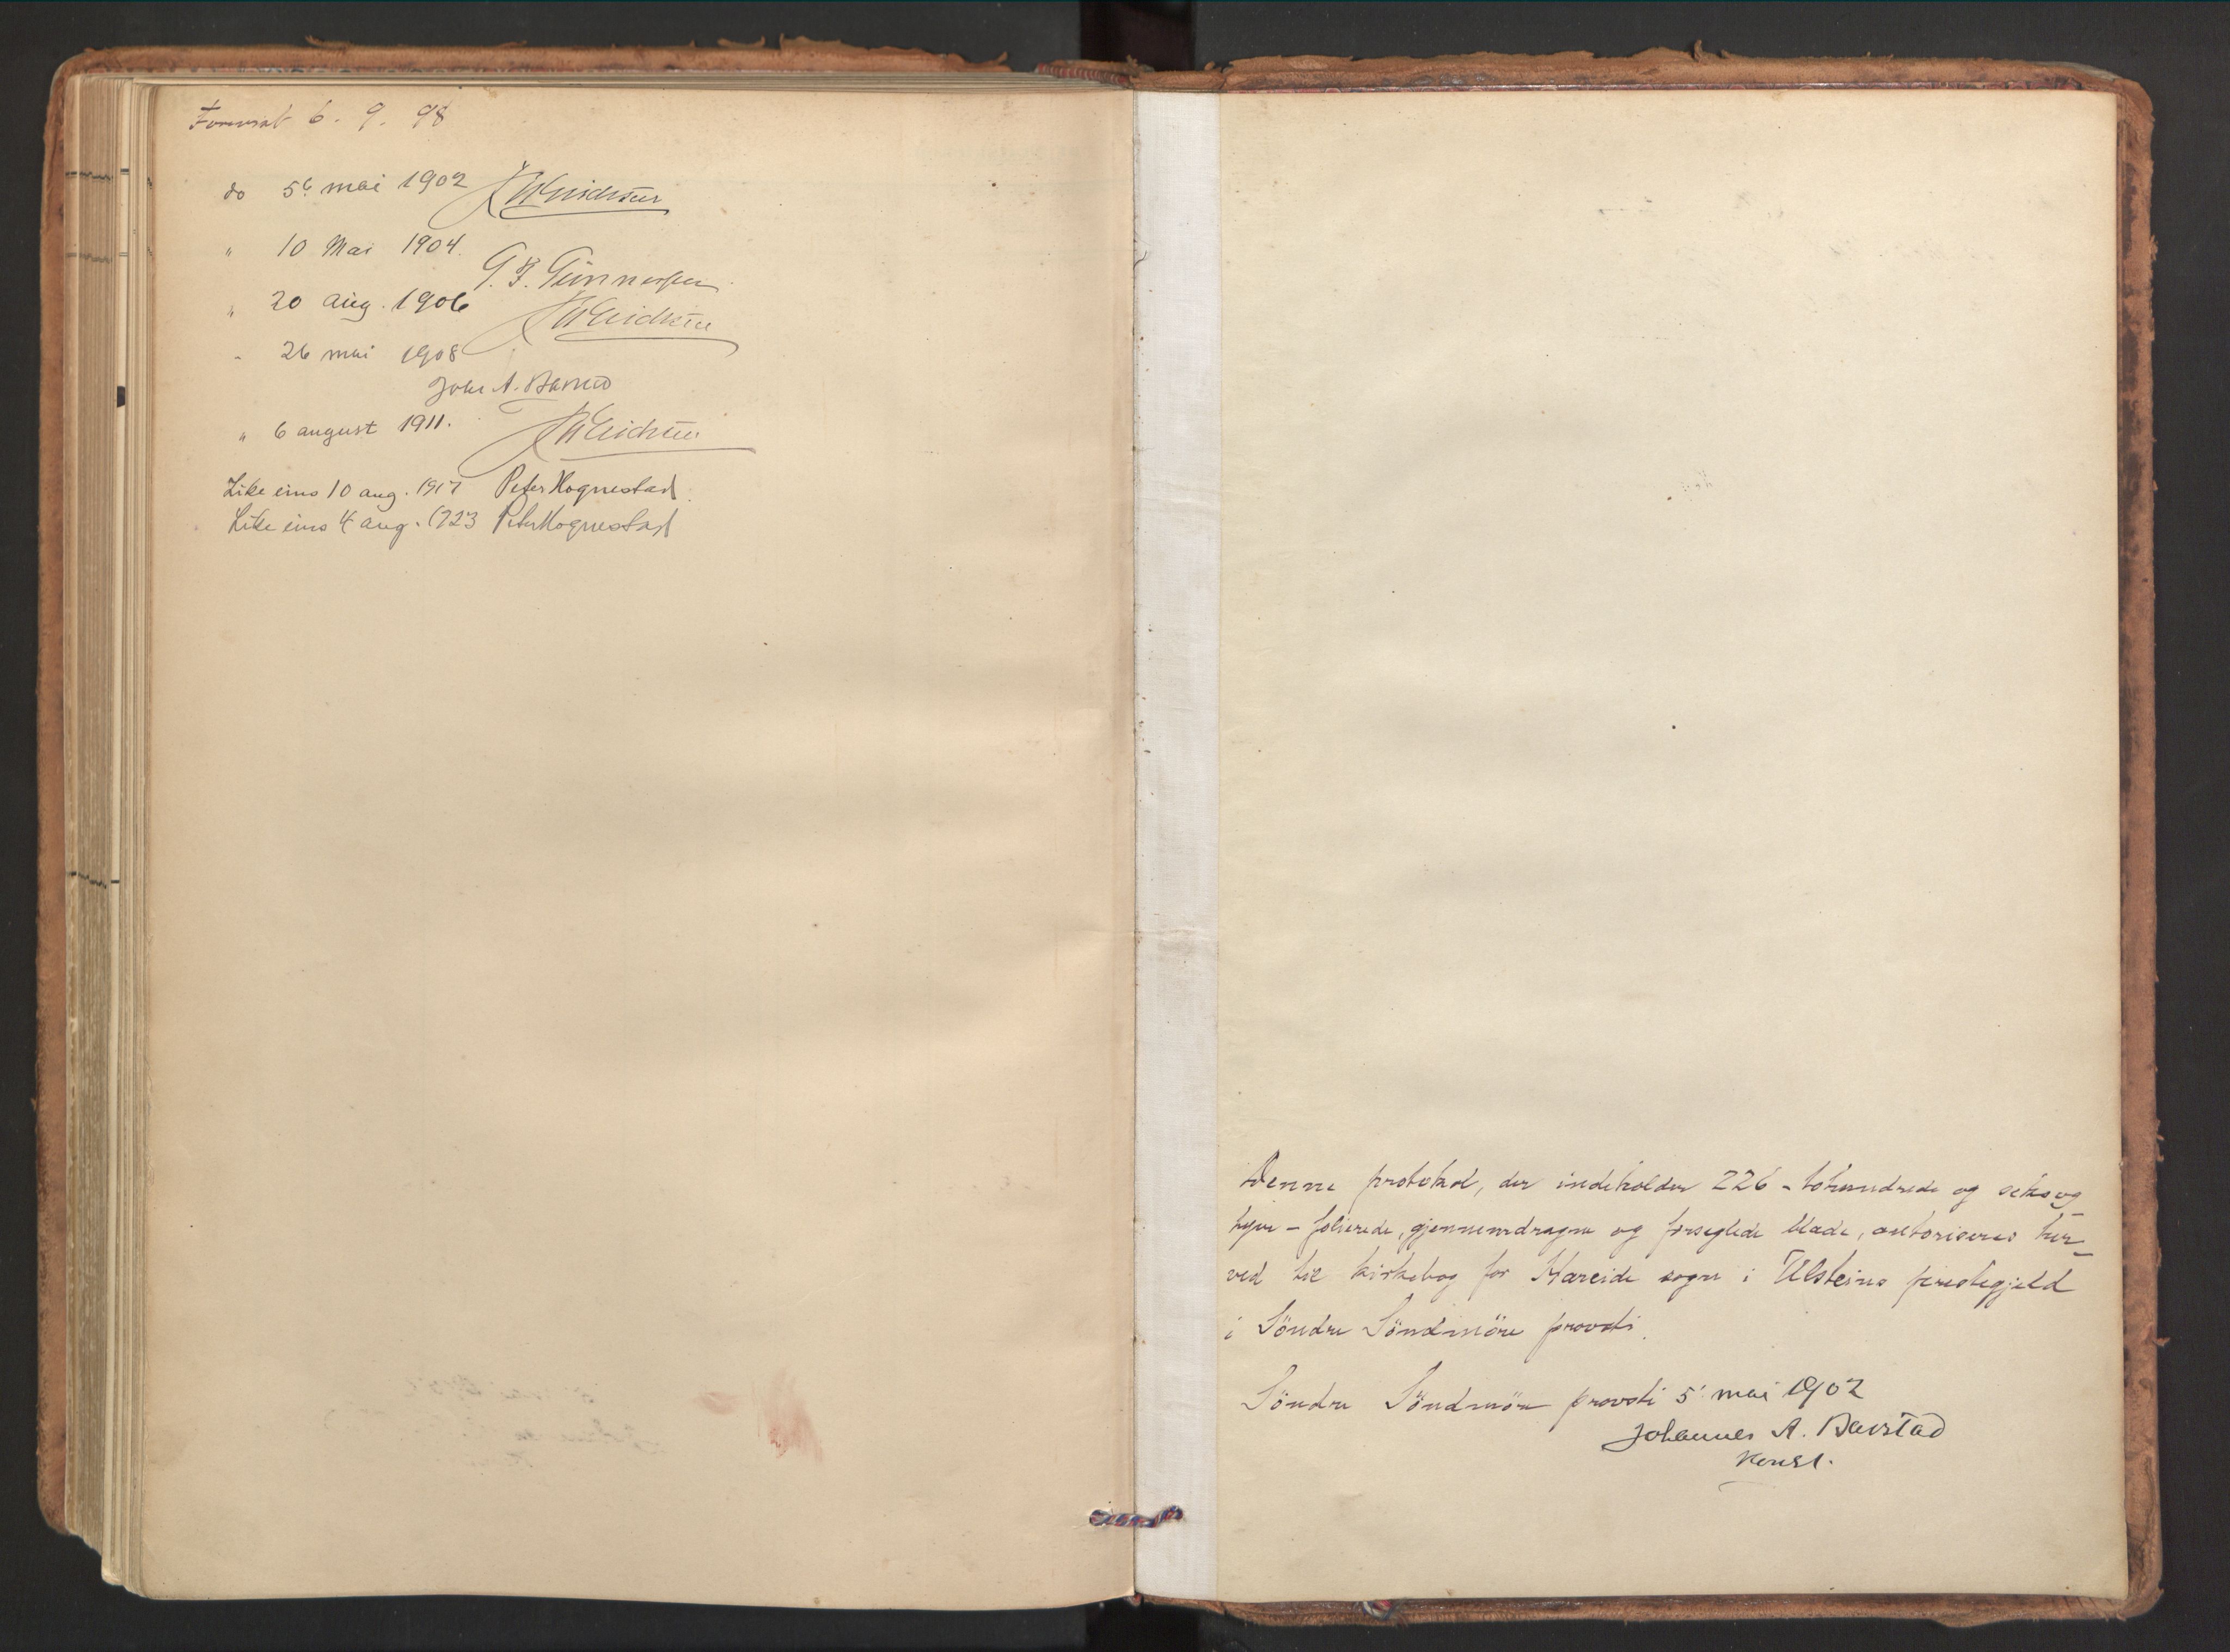 Forevist 6. 9. 98
do 5te mai 1902 J W Erichsen
" 10 Mai 1904.
G. F. Gunnersen
" 20 aug. 1906 J W Erichsen
" 26 mai 1908
Johs A. Barstad
" 6 august 1911. J W Erichsen
Like eins 10 aug. 1917 Peter Hognestad
Like eins 4 aug. 1923 Peter Hognestad
Denne protokol, der indeholder 226 - tohundrede og seksog
tyve - folierede, gjennemdragne og forseglede blade, autoriseres her
ved til kirkebog for Hareide sogn i Ulsteins prestegjeld
i Söndre Söndmöre provsti.
Söndre Söndmöre provsti 5. mai 1902
Johannes A. Barstad
konst.